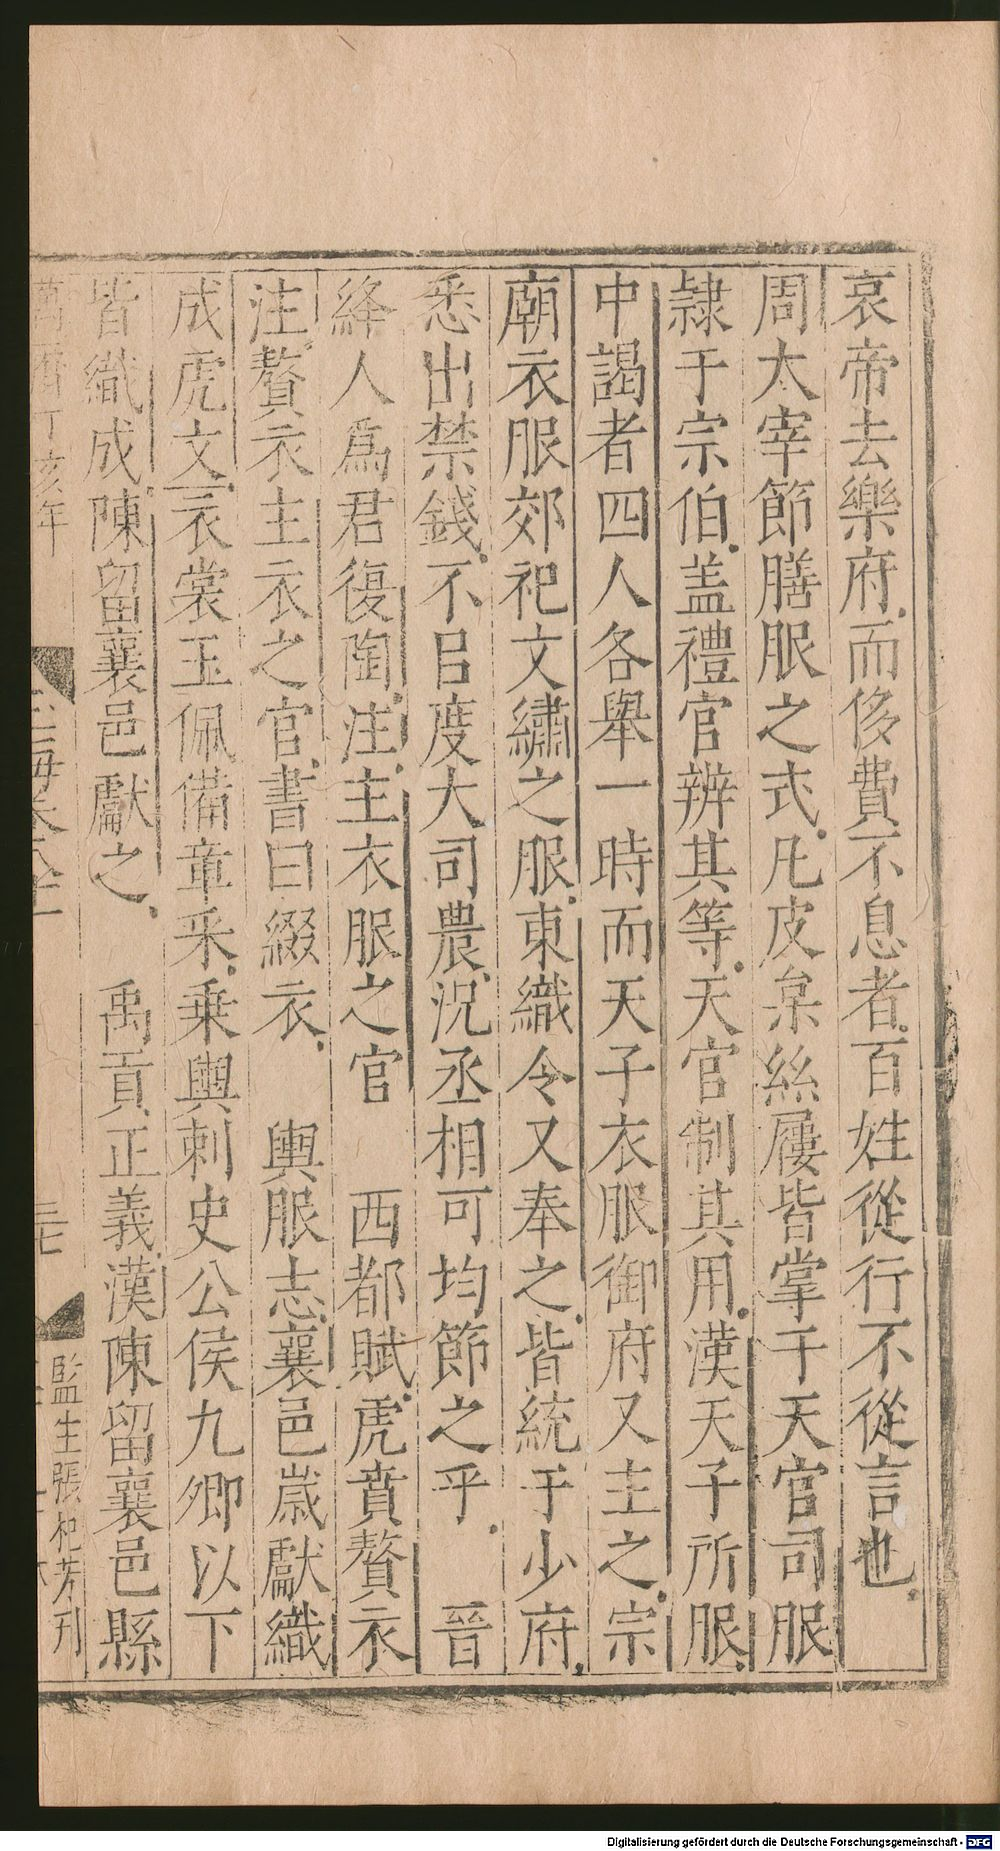 哀帝去樂府而侈費不息者百姓從行不從言也
周太宰節膳服之式凡皮枲絲屨皆掌于天官司服
隸于宗伯盖禮官辨其等天官制其用漢天子所服
中謁者四人各舉一時而天子衣服御府又主之宗
廟衣服郊祀文繡之服東織令又奉之皆統于少府
悉出禁錢不㠯度大司農況丞相可均節之乎 晉
絳人爲君復陶注主衣服之官 西都賦虎賁贅衣
注贅衣主衣之官書曰綴衣 輿服志襄邑歲獻織
成虎文衣裳玉佩備章采乗輿刺史公侯九卿以下
皆織成陳留襄邑獻之 禹貢正義漢陳留襄邑縣
萬曆丁亥年
玉海卷八十二
三七
監生張杞芳刊
Digitalisierung gefördert durch die Deutsche Forschungsgemeinschaft - DFG